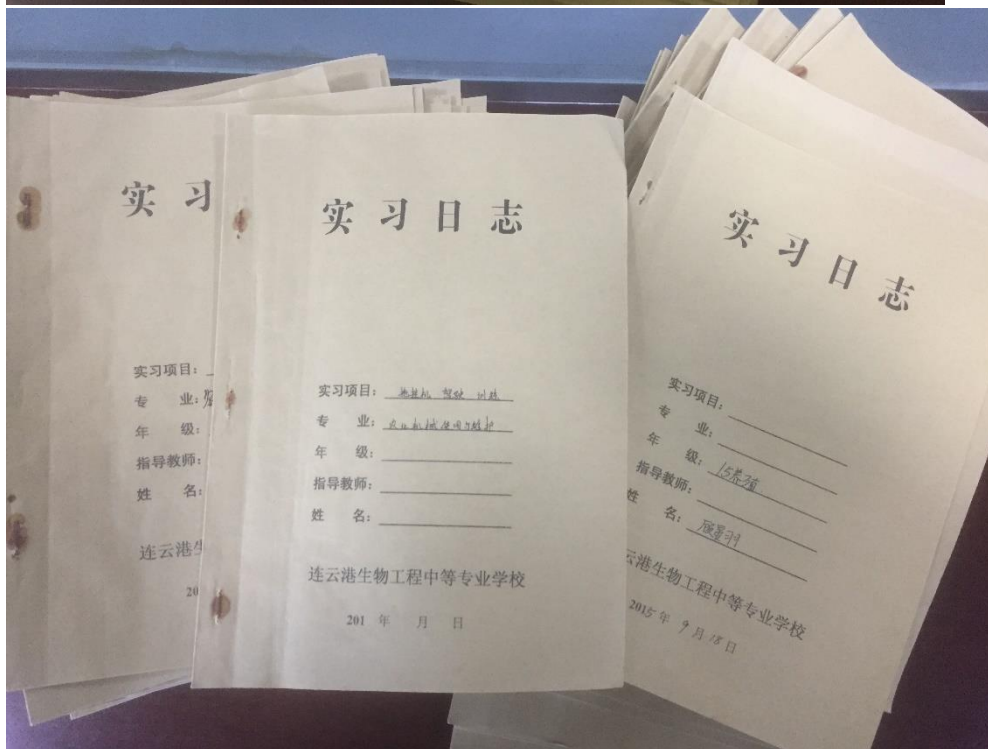 实 习
实习项目:
专 业:
年 级:
指导教师:
姓 名:
连云港生
20
实 习 日 志
实习项目: 驾驶 训练
专 业: 农业机械使用与维护
年 级:
指导教师:
姓 名:
连云港生物工程中等专业学校
201 年 月 日
实 习 日 志
实习项目:
专 业:
年 级: 15养殖
指导教师:
姓 名:
云港生物工程中等专业学校
2015 年 9 月 18 日